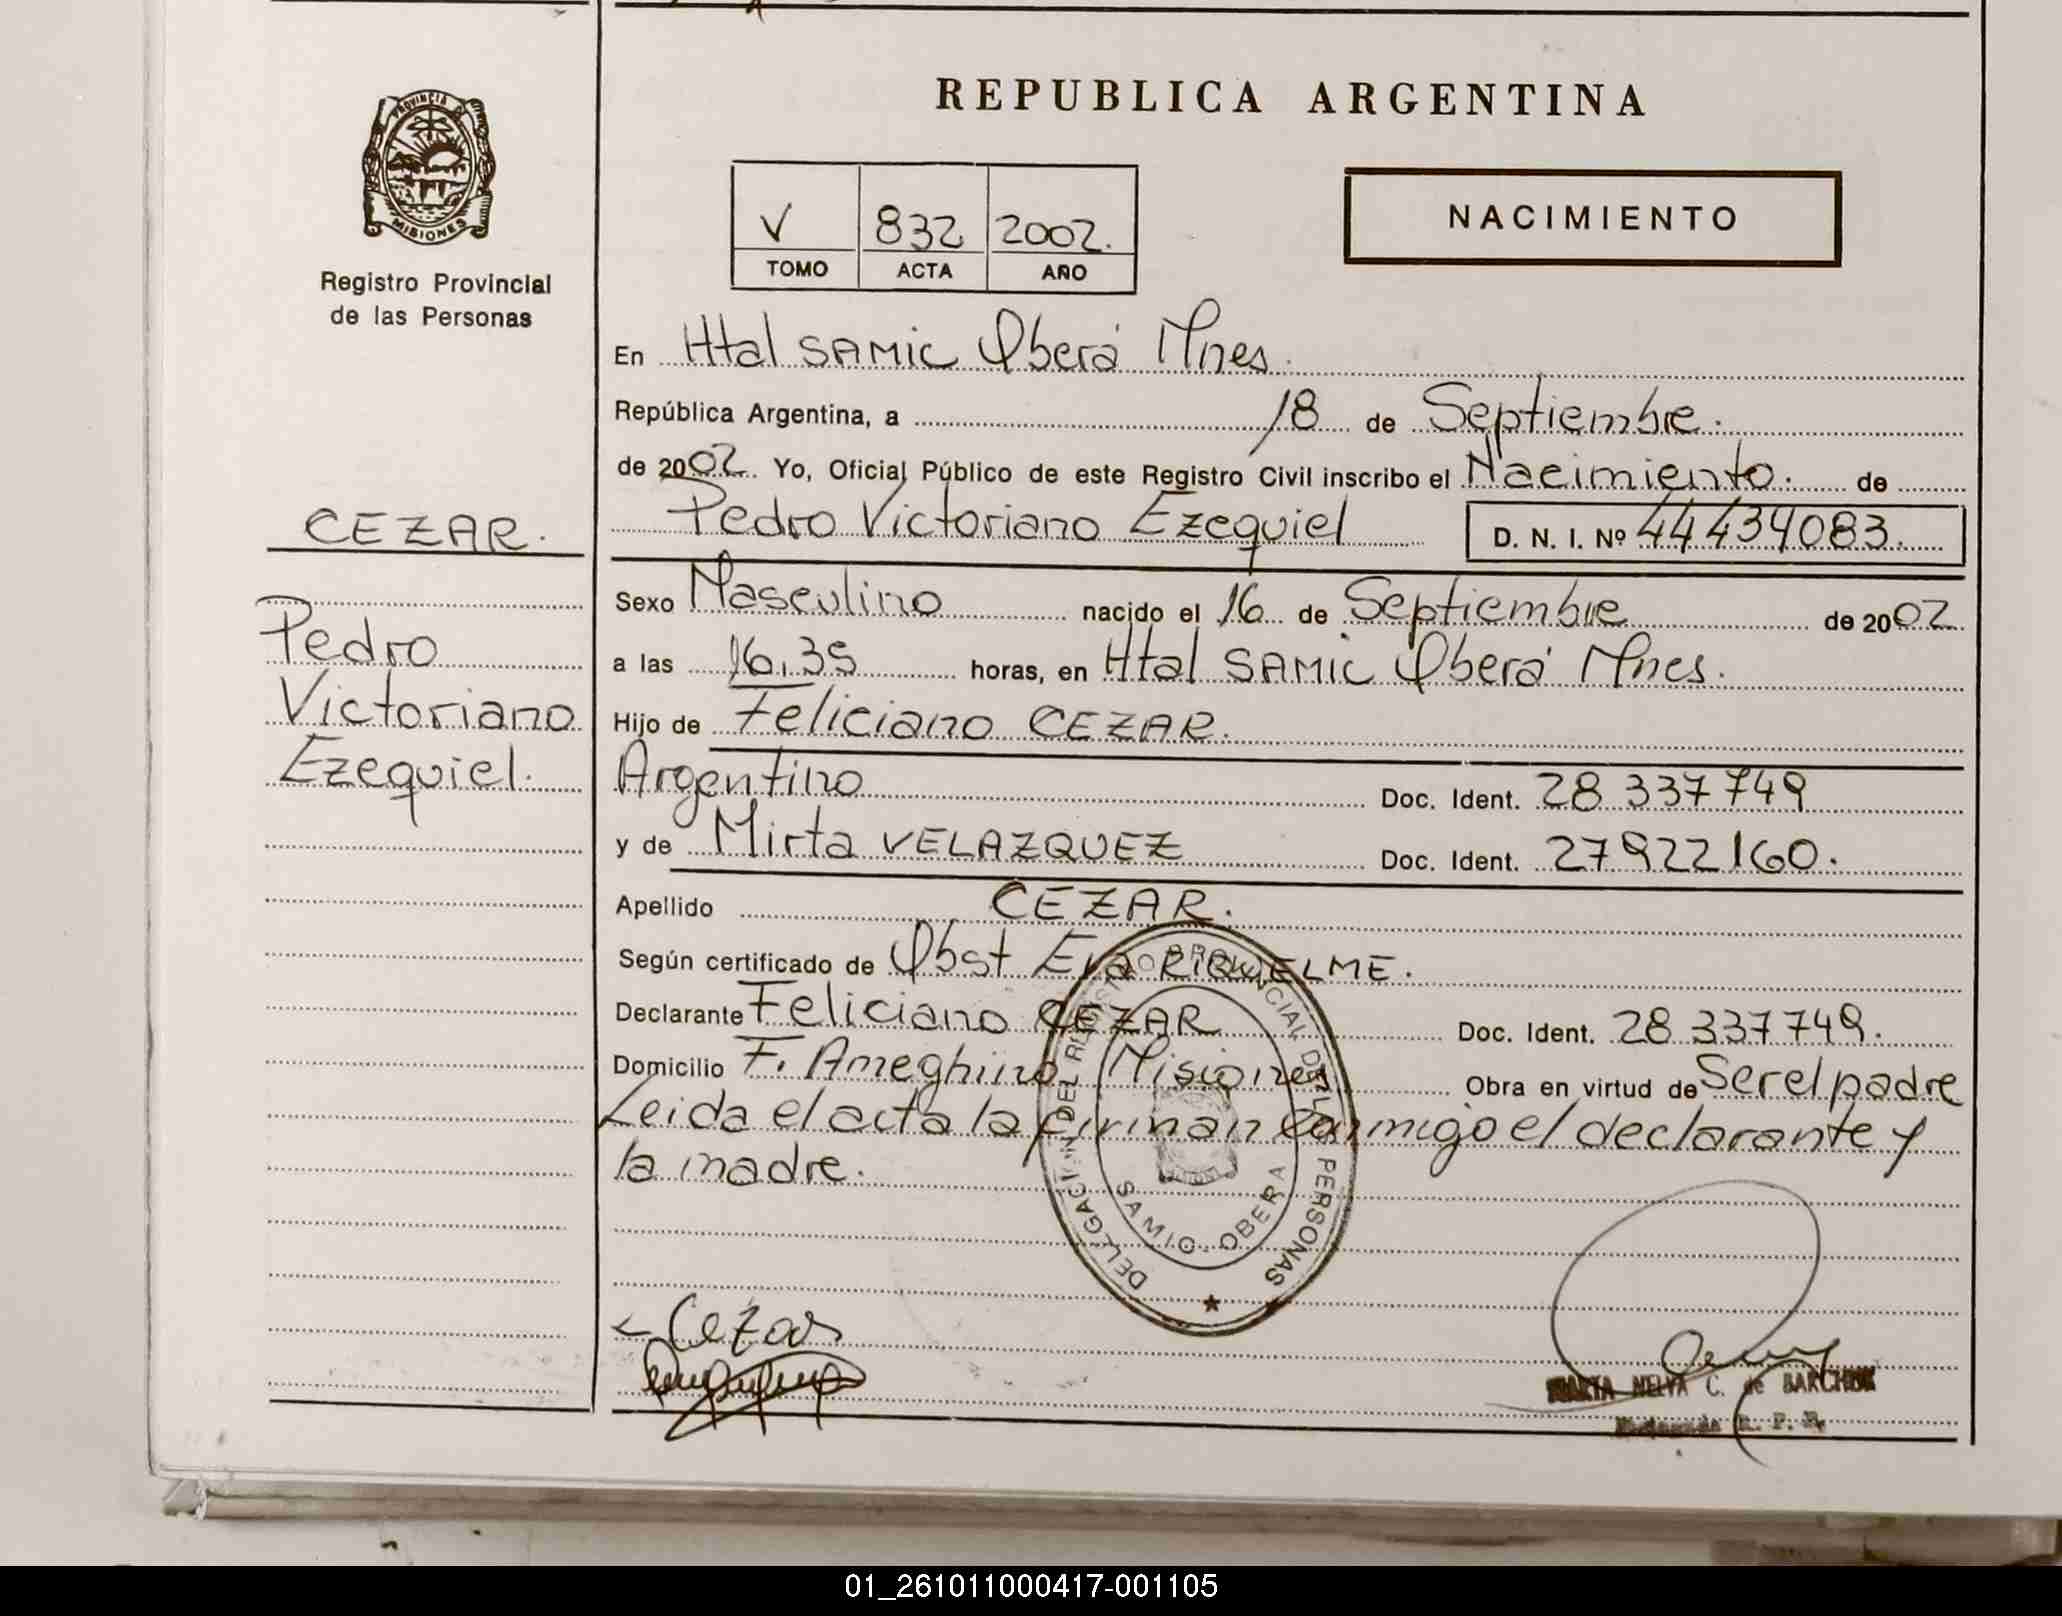 REPUBLICA ARGENTINA
PROVINCIA DE
MISIONES
Registro Provincial
de las Personas
V 832 2002.
TOMO ACTA AÑO
NACIMIENTO
En Htal SAMIC Oberá Mnes.
República Argentina, a 18 de Septiembre.
de 2002. Yo, Oficial Público de este Registro Civil inscribo el Nacimiento. de
CEZAR.
Pedro Victoriano Ezequiel D. N. I. Nº 44434083.
Pedro
Victoriano
Ezequiel.
Sexo Masculino nacido el 16 de Septiembre de 2002
a las 16,35 horas, en Htal SAMIC Oberá Mnes.
Hijo de Feliciano CEZAR.
Argentino Doc. Ident. 28 337 749
y de Mirta VELAZQUEZ Doc. Ident. 27922160.
Apellido CEZAR.
Según certificado de Obst Eva RIQUELME.
Declarante Feliciano CEZAR Doc. Ident. 28 337 749.
Domicilio F. Ameghino Misiones Obra en virtud de Ser el padre
Leida el acta la firman conmigo el declarante y
la madre.
DELEGACION DEL REGISTRO PROVINCIAL DE LAS PERSONAS
SAMIC - OBERA
Cezar
MARTA NELVA C. de
R. P. P.
01_261011000417-001105